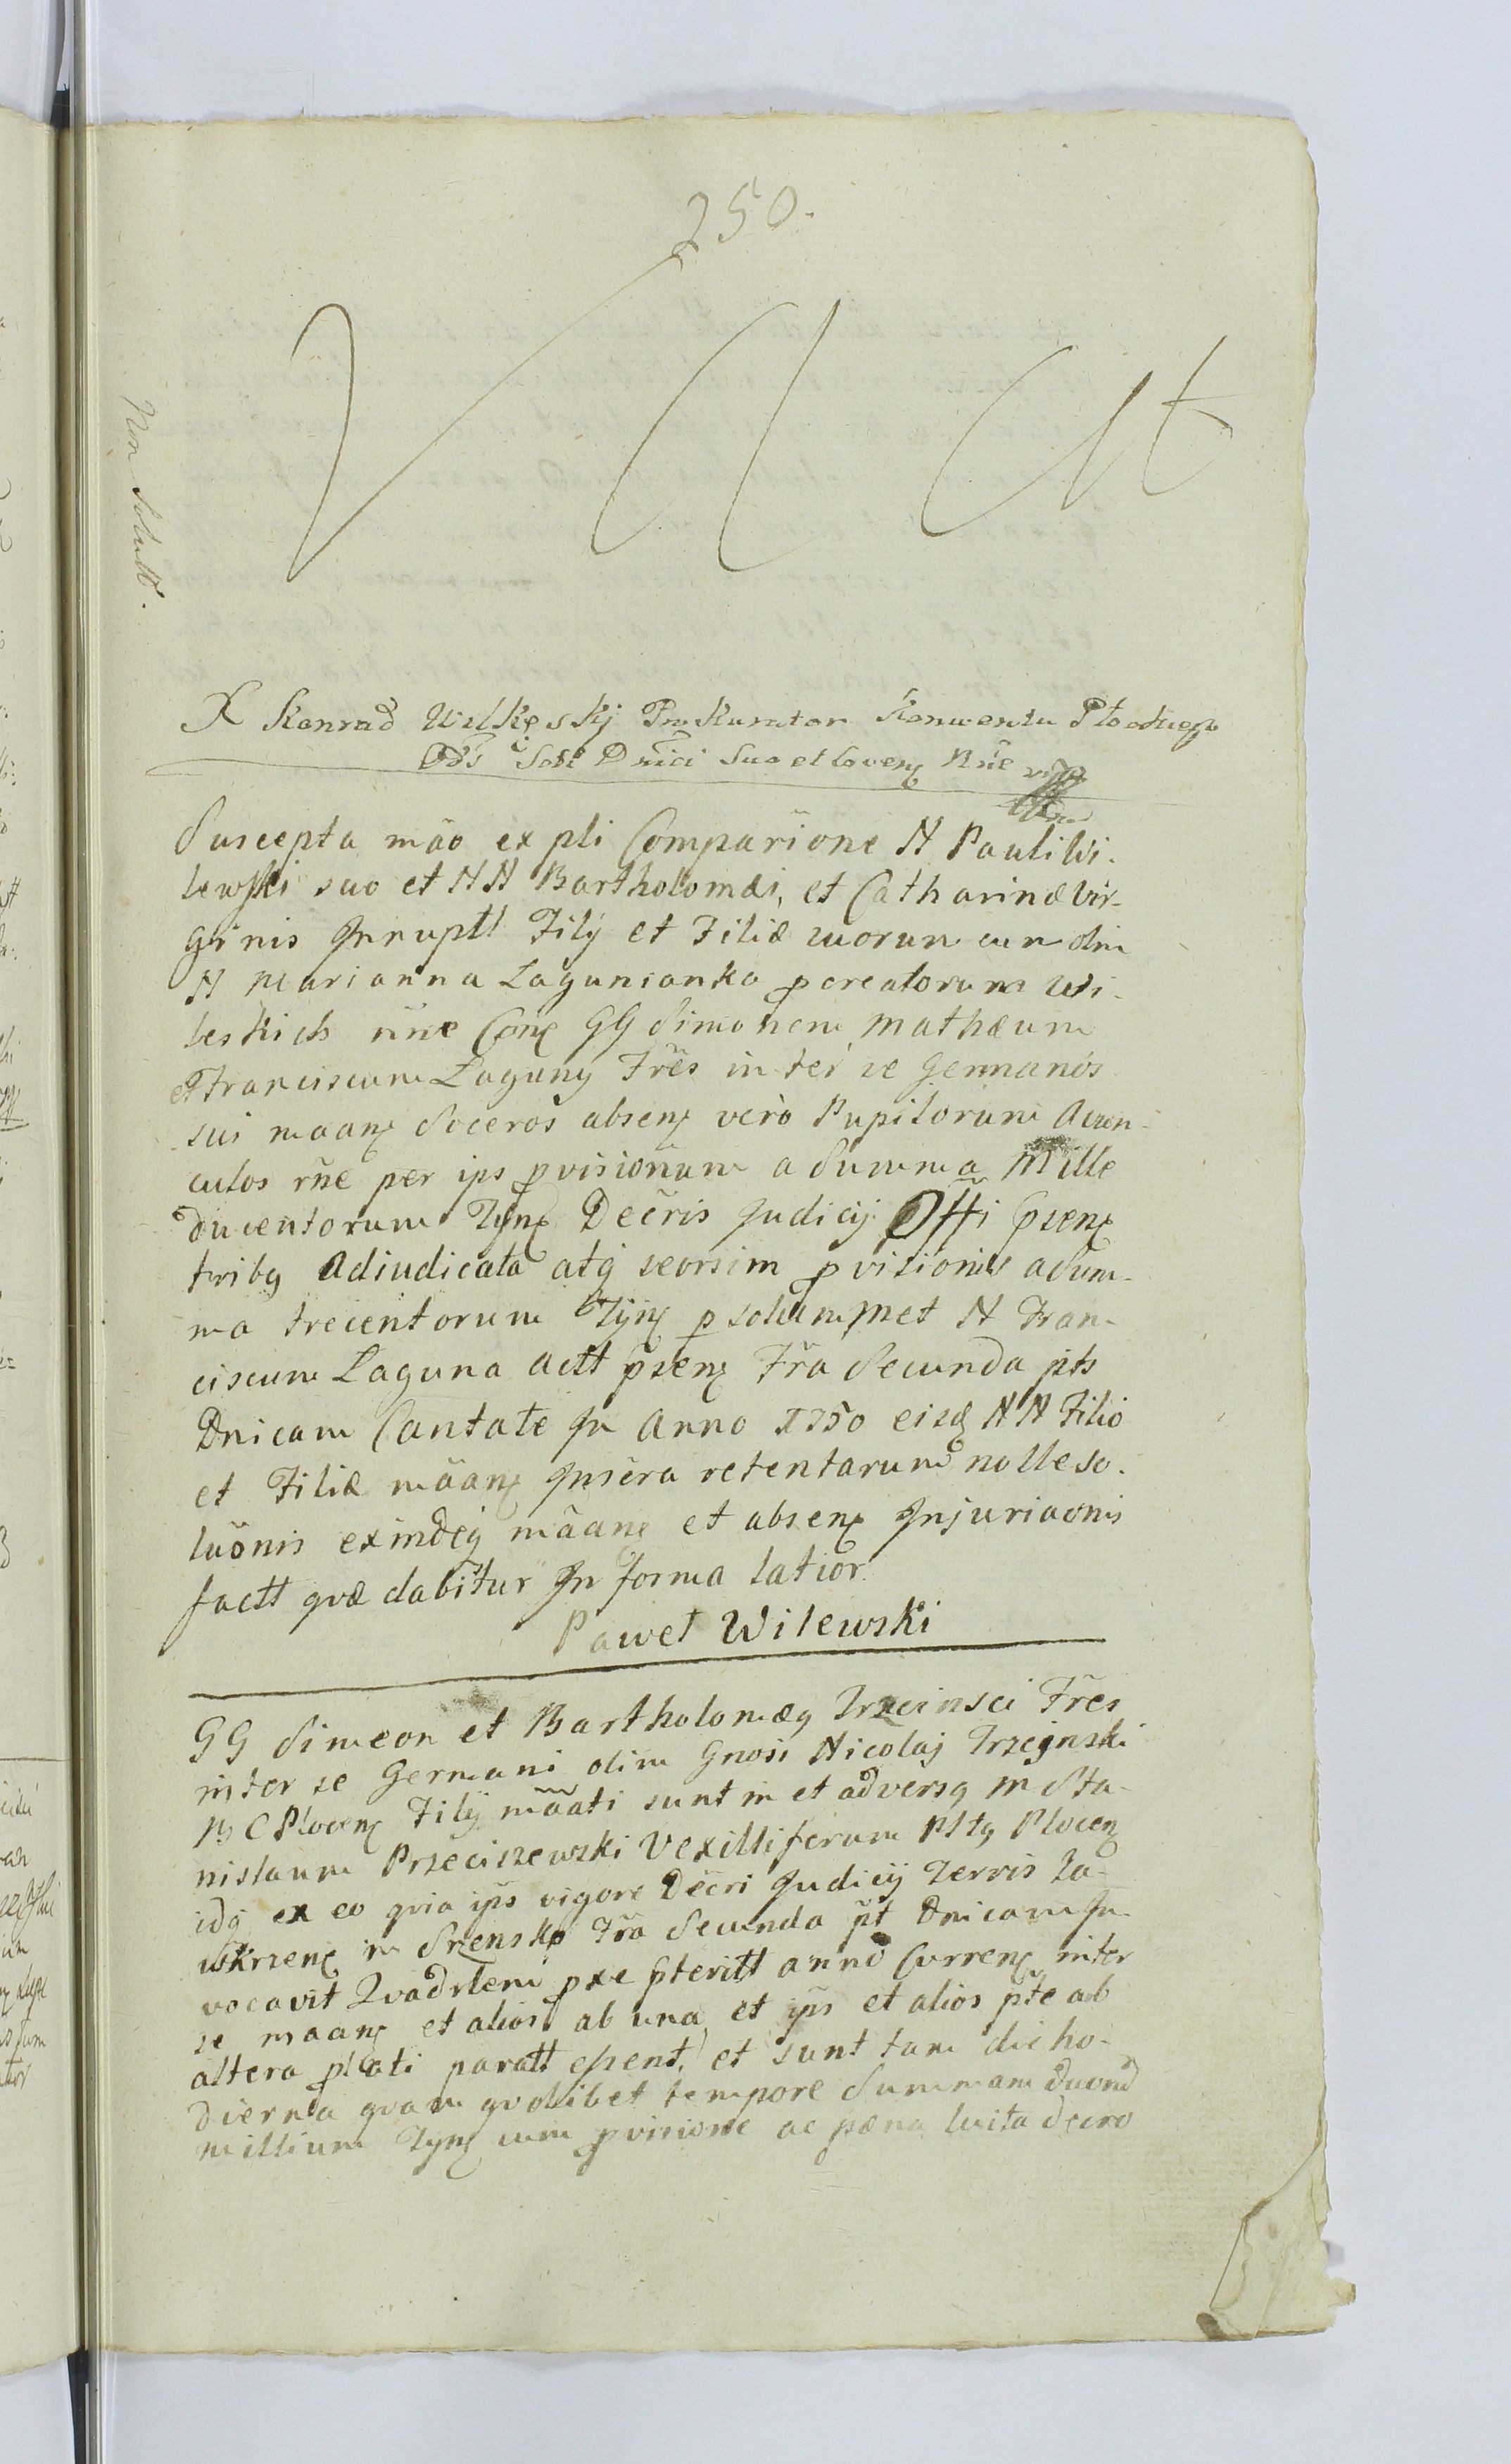 250.
Vacat
Non Soluttt.
X Konrad Wilkęskj Prokurator Konwentu Płockiego
Ods Scti Dnici Suo et Covenꝫ Nne
Suscepta mão ex pli Comparione N Pauli Wi-
lewski suo et NN Bartholomæi, et Catharinæ Vir-
ginis Innuptt Filij et Filiæ suorum cum olim
N Marianna Lagunianka procreatorum Wi-
leskich nne Conꝫ GG Simonem, Mathæum
et Franciscum Laguny Fres inter se Germanos
sui maanꝫ Soceros absenꝫ verò Pupilorum Avun-
culos rñe per ips provisionum a Summa Mille
ducentorum Tynꝫ Decris Judicij Offi psenꝫ
tribꝫ Adiudicata atqꝫ seorsim provisionis a Sum-
ma trecentorum Tynꝫ p solummet N Fran-
ciscum Laguna actt psenꝫ Fra Secunda pts
Dnicam Cantate In Anno 1750 eisdꝫ NN Filio
et Filiæ mãanꝫ Insera retentarum nolle so-
luõnis exindeqꝫ mãanꝫ et absenꝫ Injuriaonis
factt qvæ dabitur In forma latior
Paweł Wilewski
GG Simeon et Bartholomæꝫ Trzcinsci Fres
inter se Germani olim Gnosi Nicolaj Trzcinski
B C Plocenꝫ Filij mãati sunt in et adversꝫ M Sta-
nislaum Przeciszewski Vexilliferum Pltꝫ Plocenꝫ
idqꝫ ex eo qvia ips vigore Decri Judicij Terris Za-
wkrzenꝫ in Srzensko Fra Secunda pt Dnicam In-
vocavit Qvadrleni pxe pteritt anno Currenꝫ inter
se maanꝫ et alios ab una, et ips et alios pte ab
altera plati paratt essent, et sunt tam die ho-
dierna qvam qvolibet tempore Summam duorũ
millium Tynꝫ cum provisione ac pæna luita decro